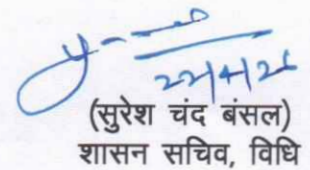 22/4/26
(सुरेश चंद बंसल)
शासन सचिव, विधि